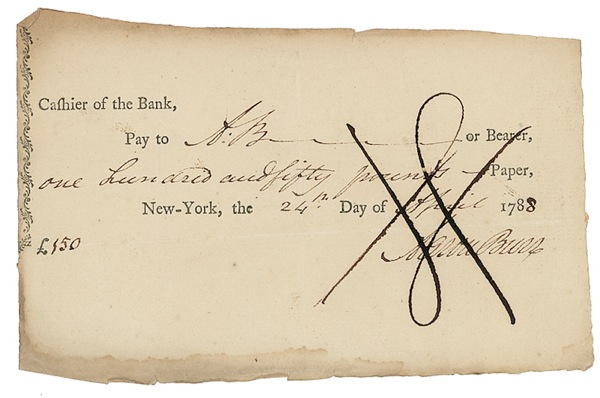 Caſhier of the Bank,
Pay to A. B or Bearer,
one hundred and fifty pounds Paper,
New-York, the 24th Day of April 1788
£150 Aaron Burr